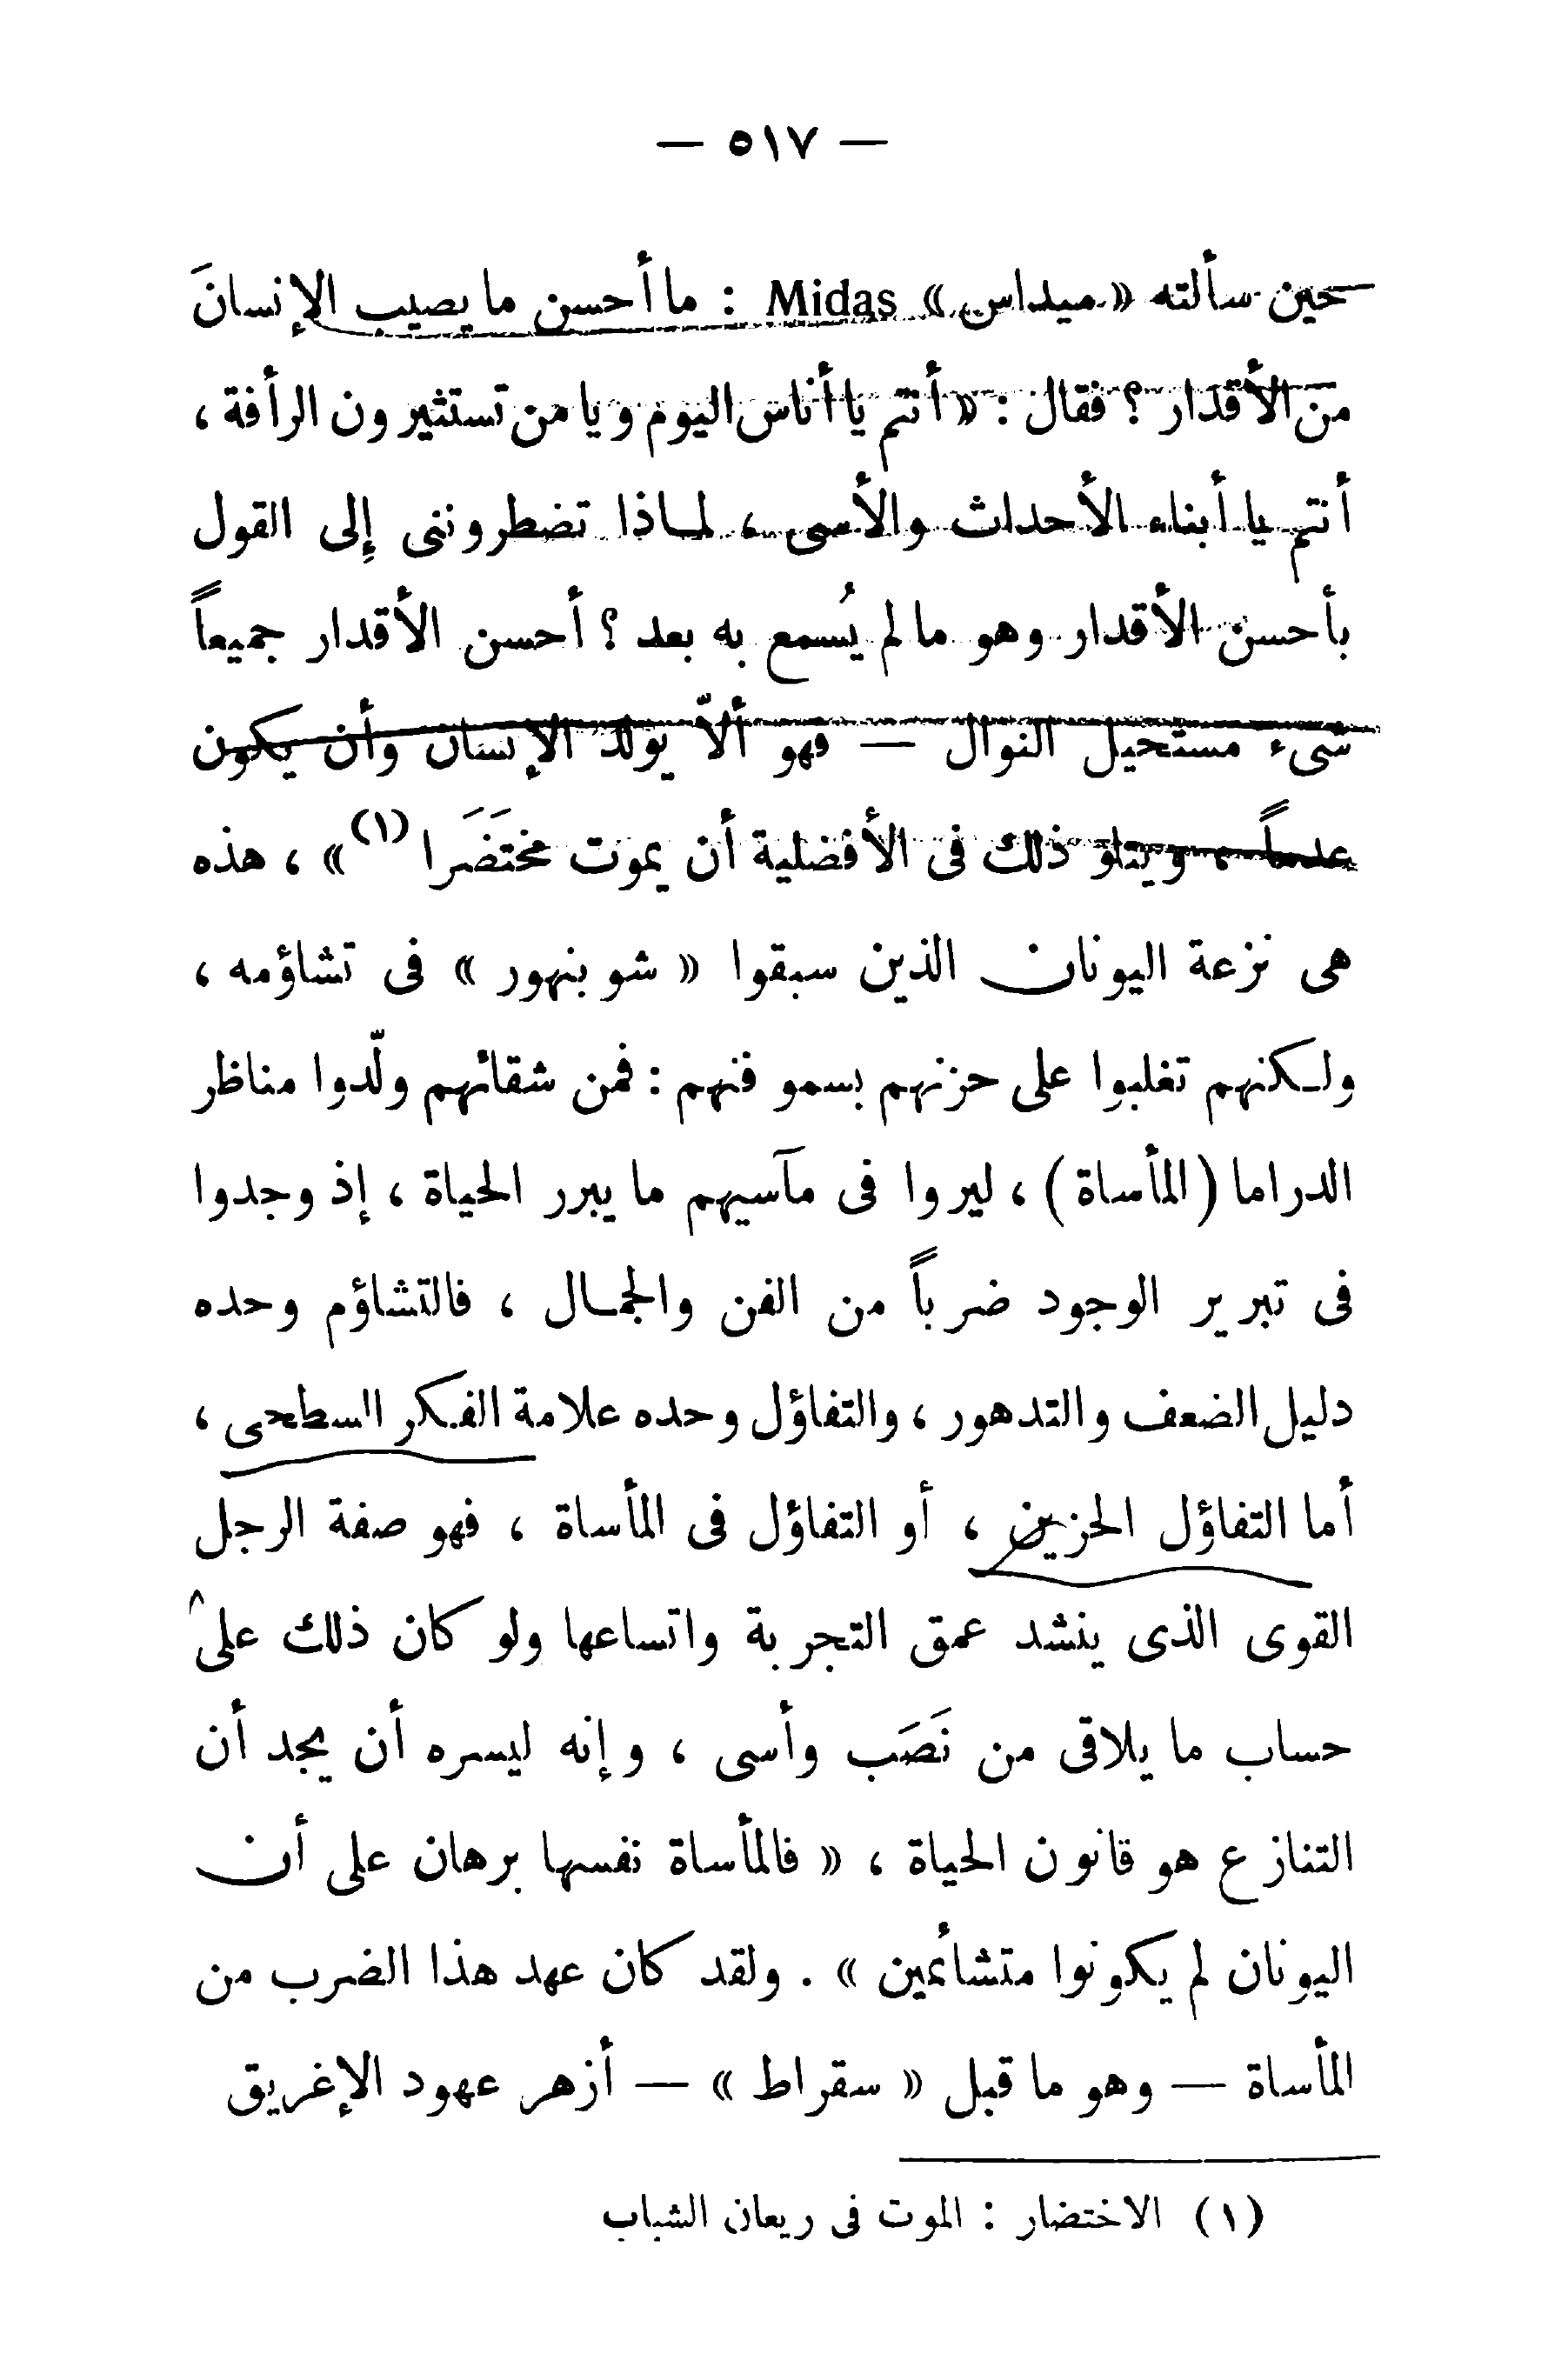 — ٥١٧ —
حين سألته «ميداس» Midas : ما أحسن ما يصيب الإنسانَ
من الأقدار ؟ فقال : «أنتم يا أناس اليوم ويا من تستثيرون الرأفة ،
أنتم يا أبناء الأحداث والأسى ، لماذا تضطروننى إلى القول
بأحسن الأقدار وهو ما لم يُسمع به بعد ؟ أحسن الأقدار جميعاً
شىء مستحيل النوال — فهو ألاّ يولد الإنسان وأن يكون
عدماً ، ويتلو ذلك فى الأفضلية أن يموت مختَضَرا (١)» ، هذه
هى نزعة اليونان الذين سبقوا « شوبنهور » فى تشاؤمه ،
ولكنهم تغلبوا على حزنهم بسمو فنهم : فمن شقائهم ولّدوا مناظر
الدراما (المأساة) ، ليروا فى مآسيهم ما يبرر الحياة ، إذ وجدوا
فى تبرير الوجود ضرباً من الفن والجمال ، فالتشاؤم وحده
دليل الضعف والتدهور ، والتفاؤل وحده علامة الفكر السطحى ،
أما التفاؤل الحزين ، أو التفاؤل فى المأساة ، فهو صفة الرجل
القوى الذى ينشد عمق التجربة واتساعها ولو كان ذلك على
حساب ما يلاقى من نَصَب وأسى ، وإنه ليسره أن يجد أن
التنازع هو قانون الحياة ، « فالمأساة نفسها برهان على أن
اليونان لم يكونوا متشائمين » . ولقد كان عهد هذا الضرب من
المأساة — وهو ما قبل « سقراط » — أزهر عهود الإغريق
(١) الاختضار : الموت فى ريعان الشباب